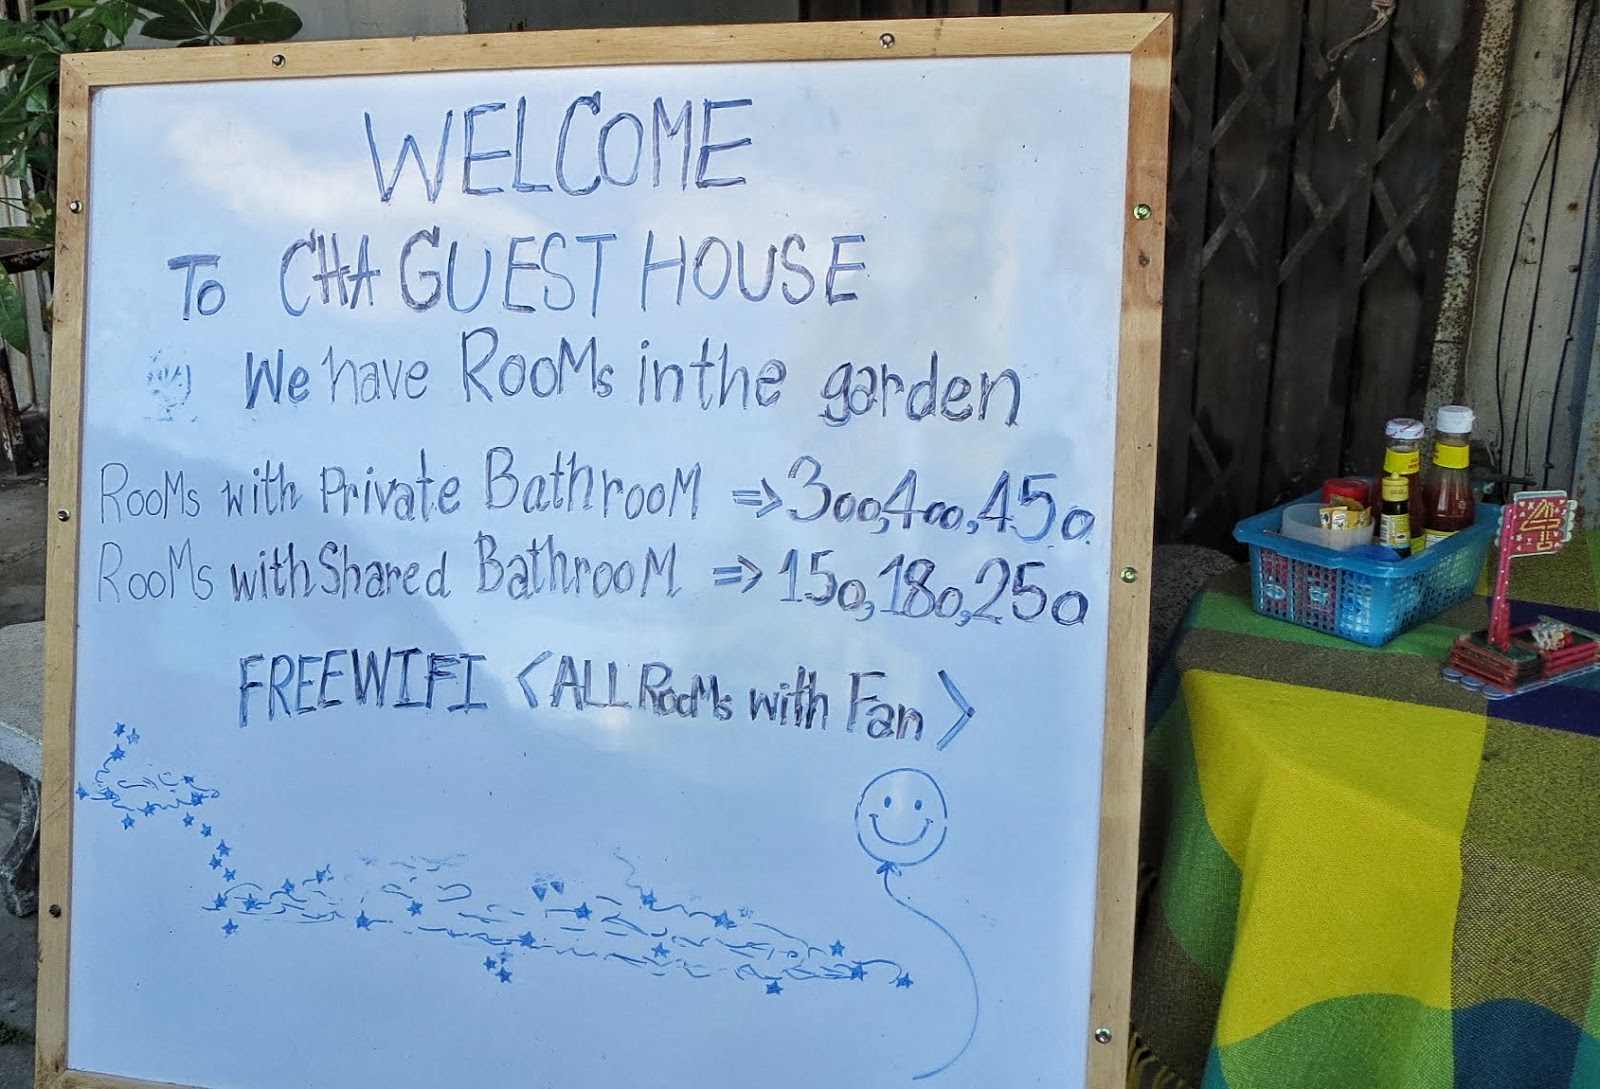 WELCOME
To CHA GUEST HOUSE
We have RooMs in the garden
RooMs with Private BathrooM => 300,400,450
RooMs with Shared BathrooM => 150,180,250
FREE WIFI <ALL RooMs with Fan>